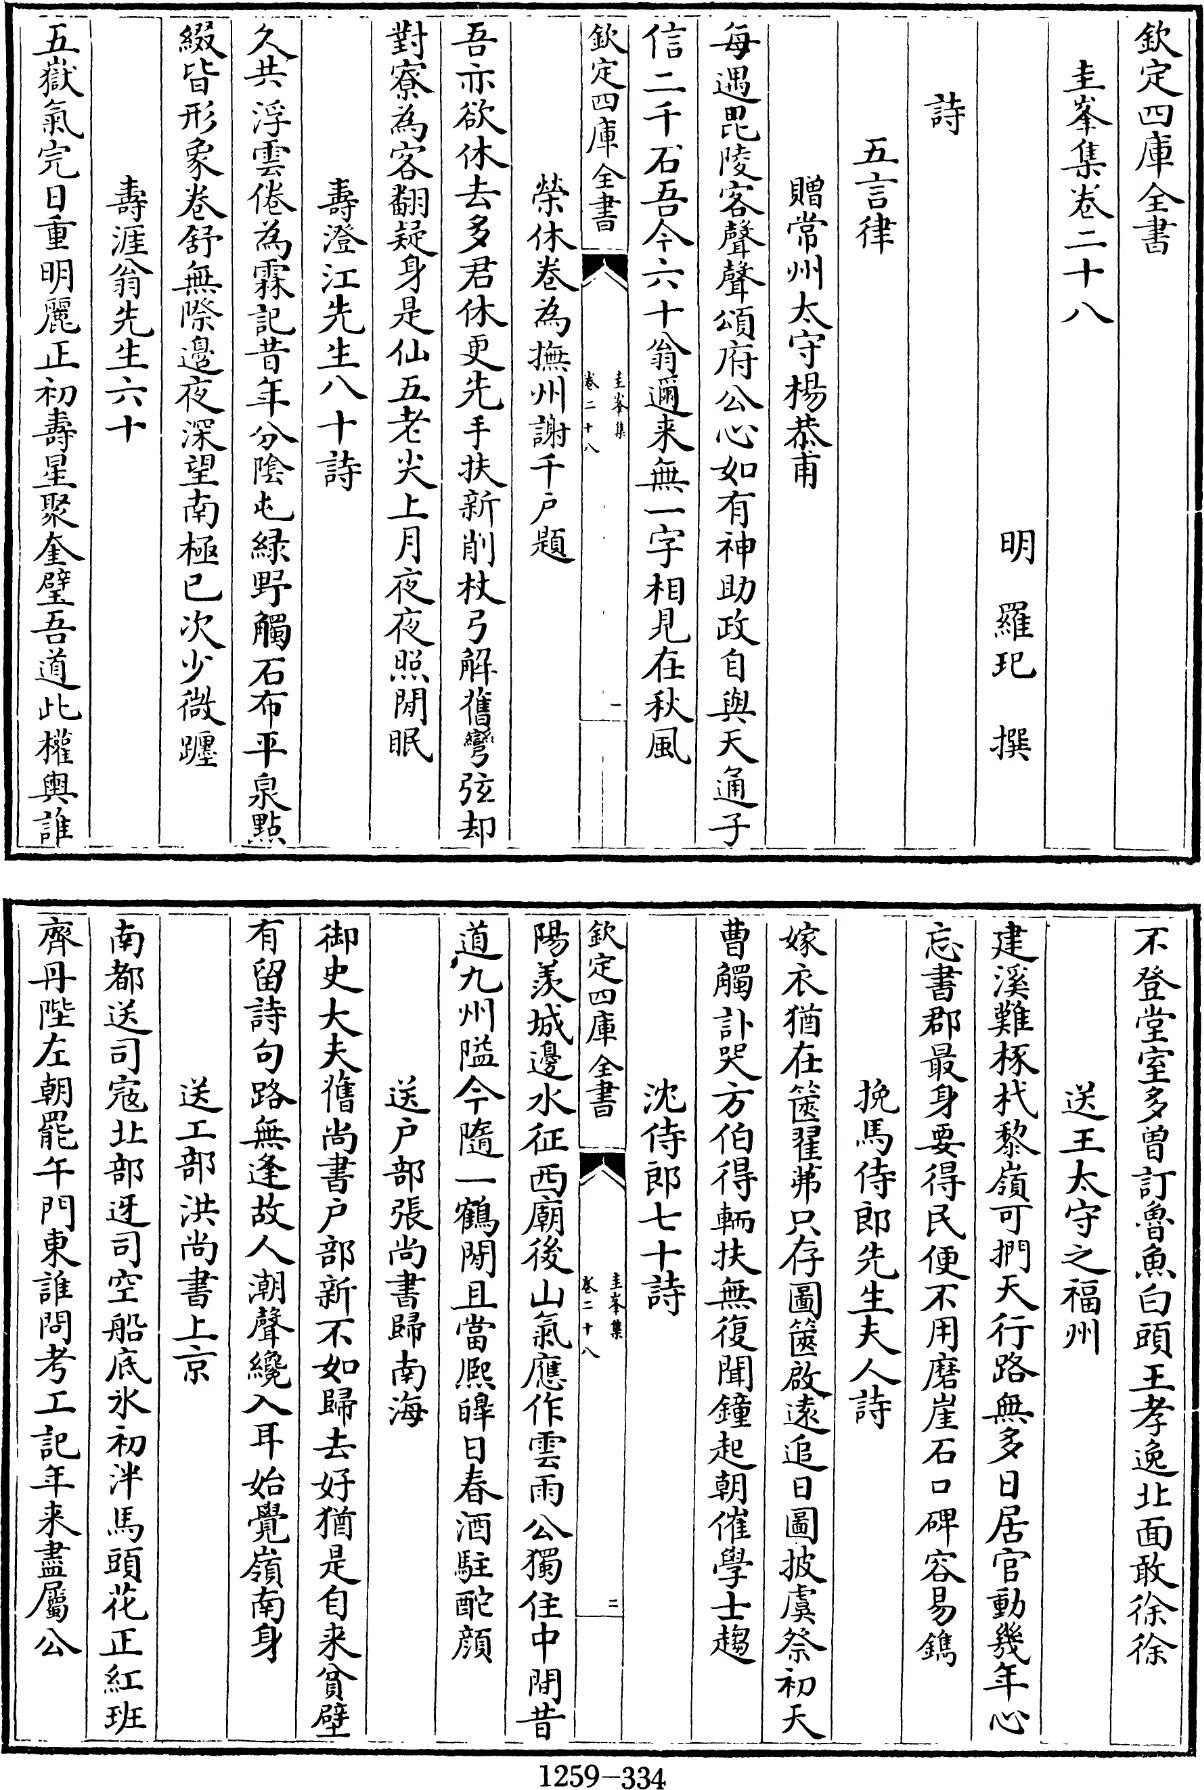 欽定四庫全書
圭峯集卷二十八
明　羅玘　撰
詩
五言律
贈常州太守楊恭甫
每遇毘陵客聲聲頌府公心如有神助政自與天通子
信二千石吾今六十翁邇来無一字相見在秋風
欽定四庫全書
圭峯集
卷二十八
一
榮休卷為撫州謝千戶題
吾亦欲休去多君休更先手扶新削杖弓解舊彎弦却
對寮為客翻疑身是仙五老尖上月夜夜照閒眠
壽澄江先生八十詩
久共浮雲倦為霖記昔年分陰屯緑野觸石布平泉點
綴皆形象卷舒無際邊夜深望南極已次少微躔
壽涯翁先生六十
五嶽氣完日重明麗正初壽星聚奎璧吾道此權輿誰
不登堂室多曽訂魯魚白頭王孝逸北面敢徐徐
送王太守之福州
建溪難椓杙黎嶺可捫天行路無多日居官動幾年心
忘書郡最身要得民便不用磨崖石口碑容易鐫
挽馬侍郎先生夫人詩
嫁衣猶在篋翟茀只存圖篋啟遠追日圖披虞祭初天
曹觸訃哭方伯得輀扶無復聞鐘起朝催學士趨
沈侍郎七十詩
欽定四庫全書
圭峯集
卷二十八
二
陽羨城邊水征西廟後山氣應作雲雨公獨住中間昔
道九州隘今隨一鶴閒且當熈皥日春酒駐酡顔
送户部張尚書歸南海
御史大夫舊尚書户部新不如歸去好猶是自来貧壁
有留詩句路無逢故人潮聲纔入耳始覺嶺南身
送工部洪尚書上京
南都送司寇北部迓司空船底氷初泮馬頭花正紅班
齊丹陛左朝罷午門東誰問考工記年来盡屬公
1259-334